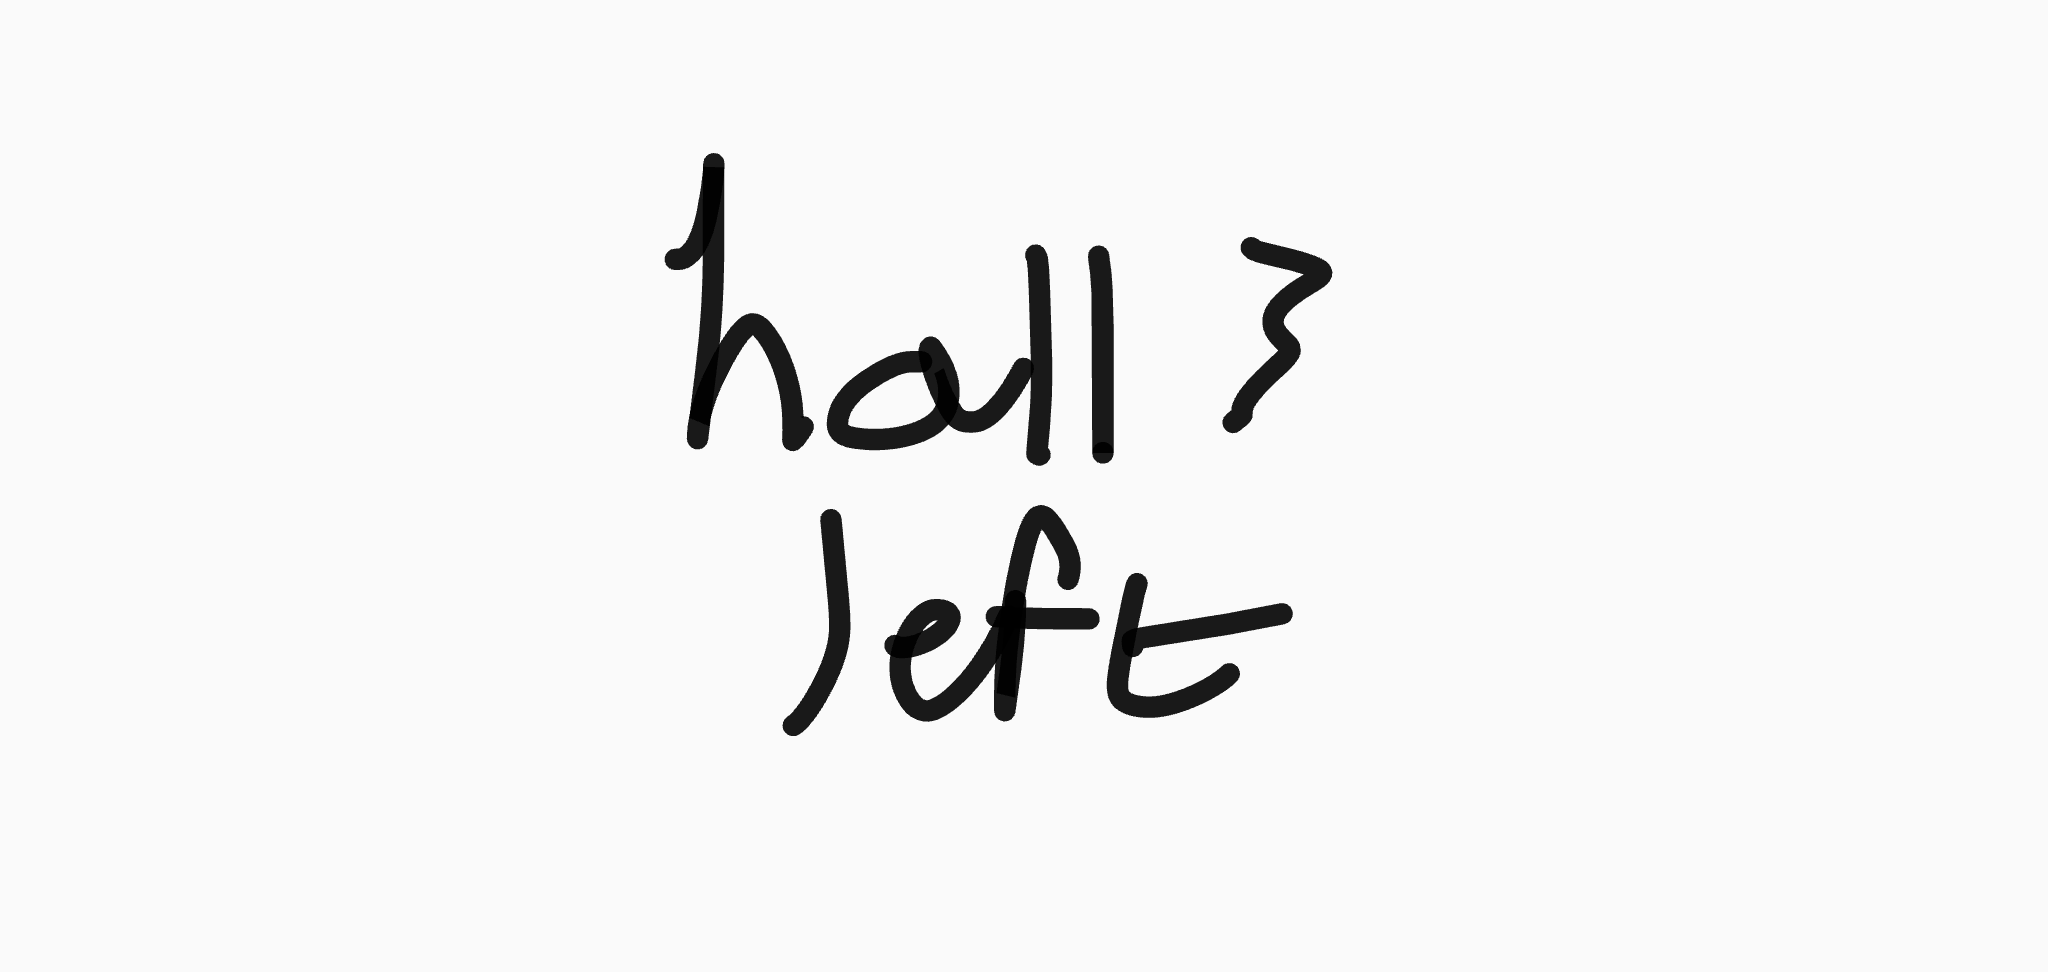 hall 3
left